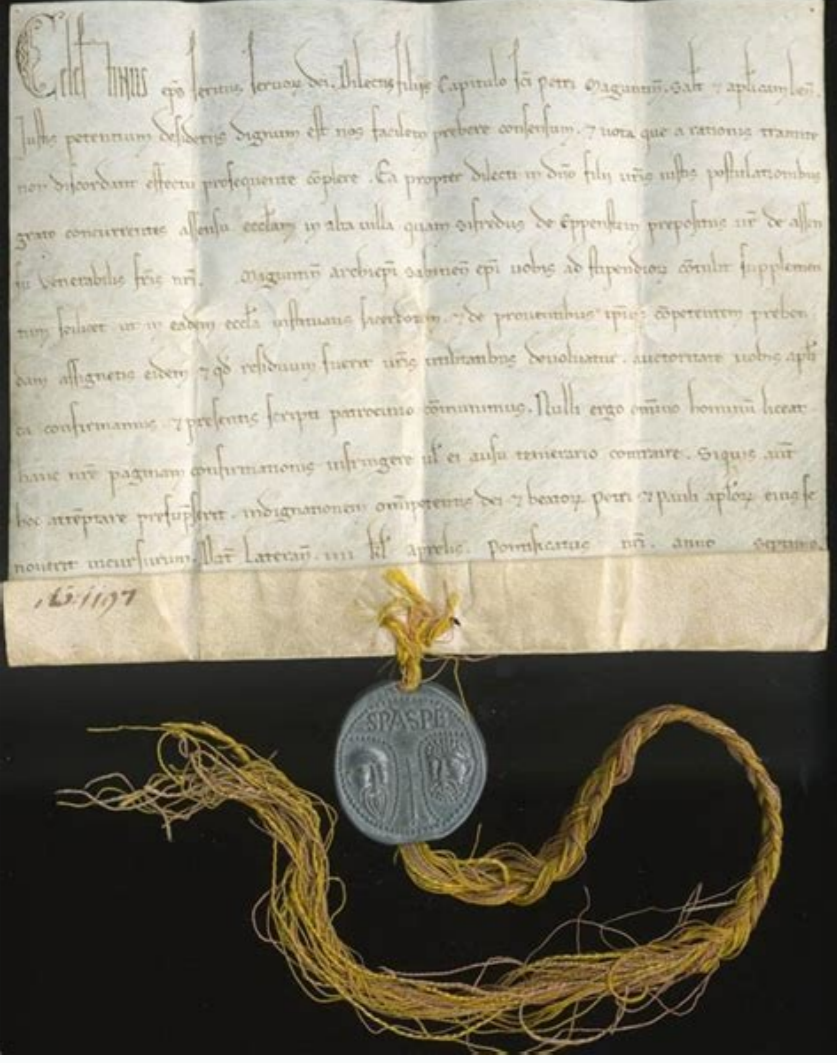 Celestinus eps servus servoꝝ dei. Dilectis filiis Capitulo sci petri Maguntin̄. Salt̄ ⁊ aplicam ben̄.
Iustis petentium desideriis dignum est nos facilem prebere consensum. ⁊ vota que a rationis tramite
non discordant effectu prosequente cōplere. Ea propter dilecti in dn̄o filii vr̄is iustis postulationibus
grato concurrentes assensu eccl̄am in alta villa quam Sifredus de Eppenstein prepositus vr̄ de assen
su venerabilis fr̄is nr̄i. Maguntin̄ archiepi Sabinen̄ epi vobis ad stipendioꝝ contulit supplemen
tum scilicet ut in eadem eccl̄a instituatis sacerdotem. ⁊ de proventibus ipīus cōpetentem preben
dam assignetis eidem ⁊ qd̄ residuum fuerit vr̄is utilitatibus devolvatur. auctoritate vobis apli
ca confirmamus. ⁊ presentis scripti patrocinio cōmunimus. Nulli ergo omīno hominum liceat
hanc nr̄e paginam confirmationis infringere ul̄ ei ausu temerario contraire. Siquis aut̄
hoc attēptare presūpserit. indignationem omīpotentis dei ⁊ beatoꝝ petri ⁊ pauli apl̄oꝝ eius se
noverit incursurum. Dat̄ Lateran̄. iiii kl̄ aprelis. pontificatus nr̄i. anno septimo.
1197
SPASPE